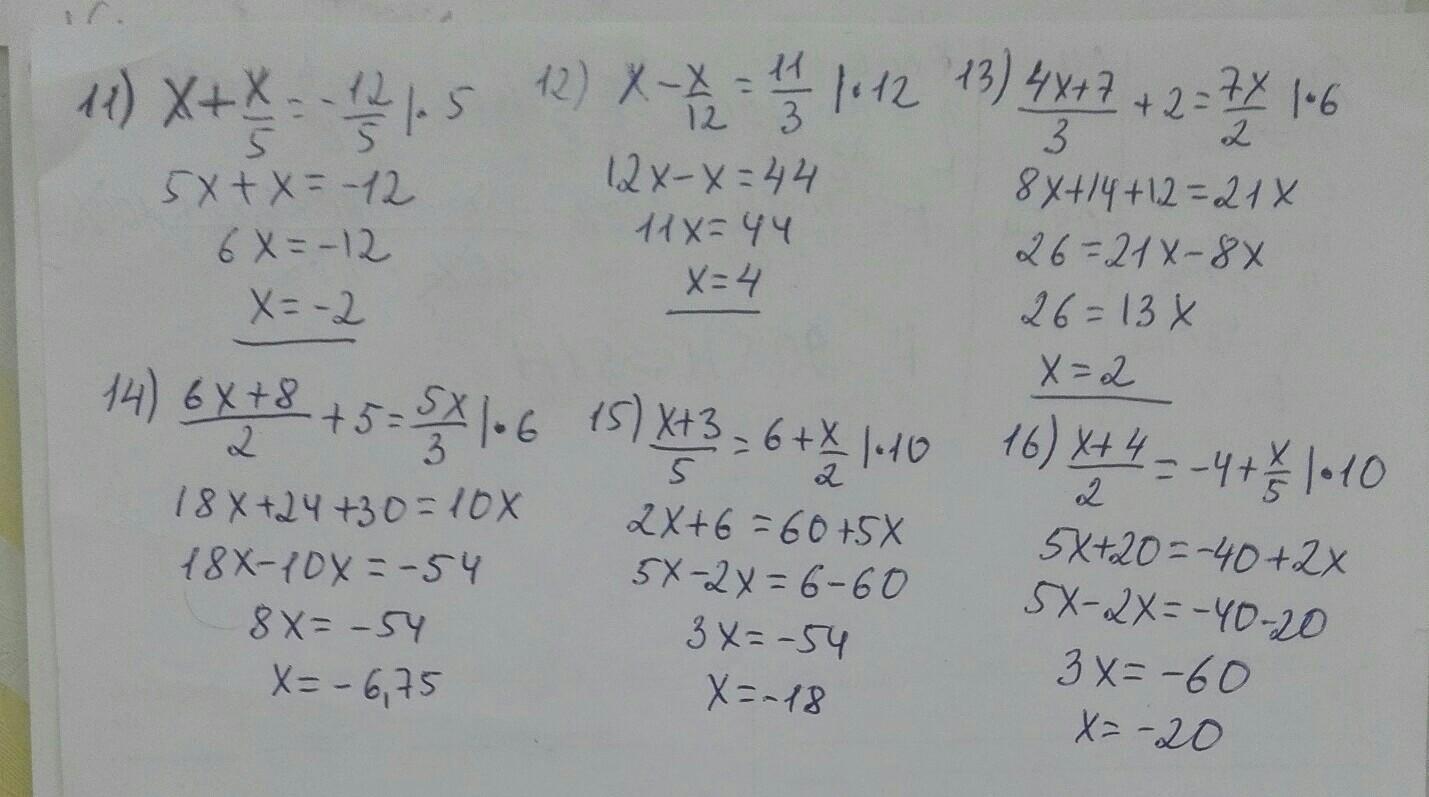 11) x + x/5 = -12/5 |·5
5x + x = -12
6x = -12
x = -2
12) x - x/12 = 11/3 |·12
12x - x = 44
11x = 44
x = 4
13) (4x+7)/3 + 2 = 7x/2 |·6
8x + 14 + 12 = 21x
26 = 21x - 8x
26 = 13x
x = 2
14) (6x+8)/2 + 5 = 5x/3 |·6
18x + 24 + 30 = 10x
18x - 10x = -54
8x = -54
x = -6,75
15) (x+3)/5 = 6 + x/2 |·10
2x + 6 = 60 + 5x
5x - 2x = 6 - 60
3x = -54
x = -18
16) (x+4)/2 = -4 + x/5 |·10
5x + 20 = -40 + 2x
5x - 2x = -40 - 20
3x = -60
x = -20